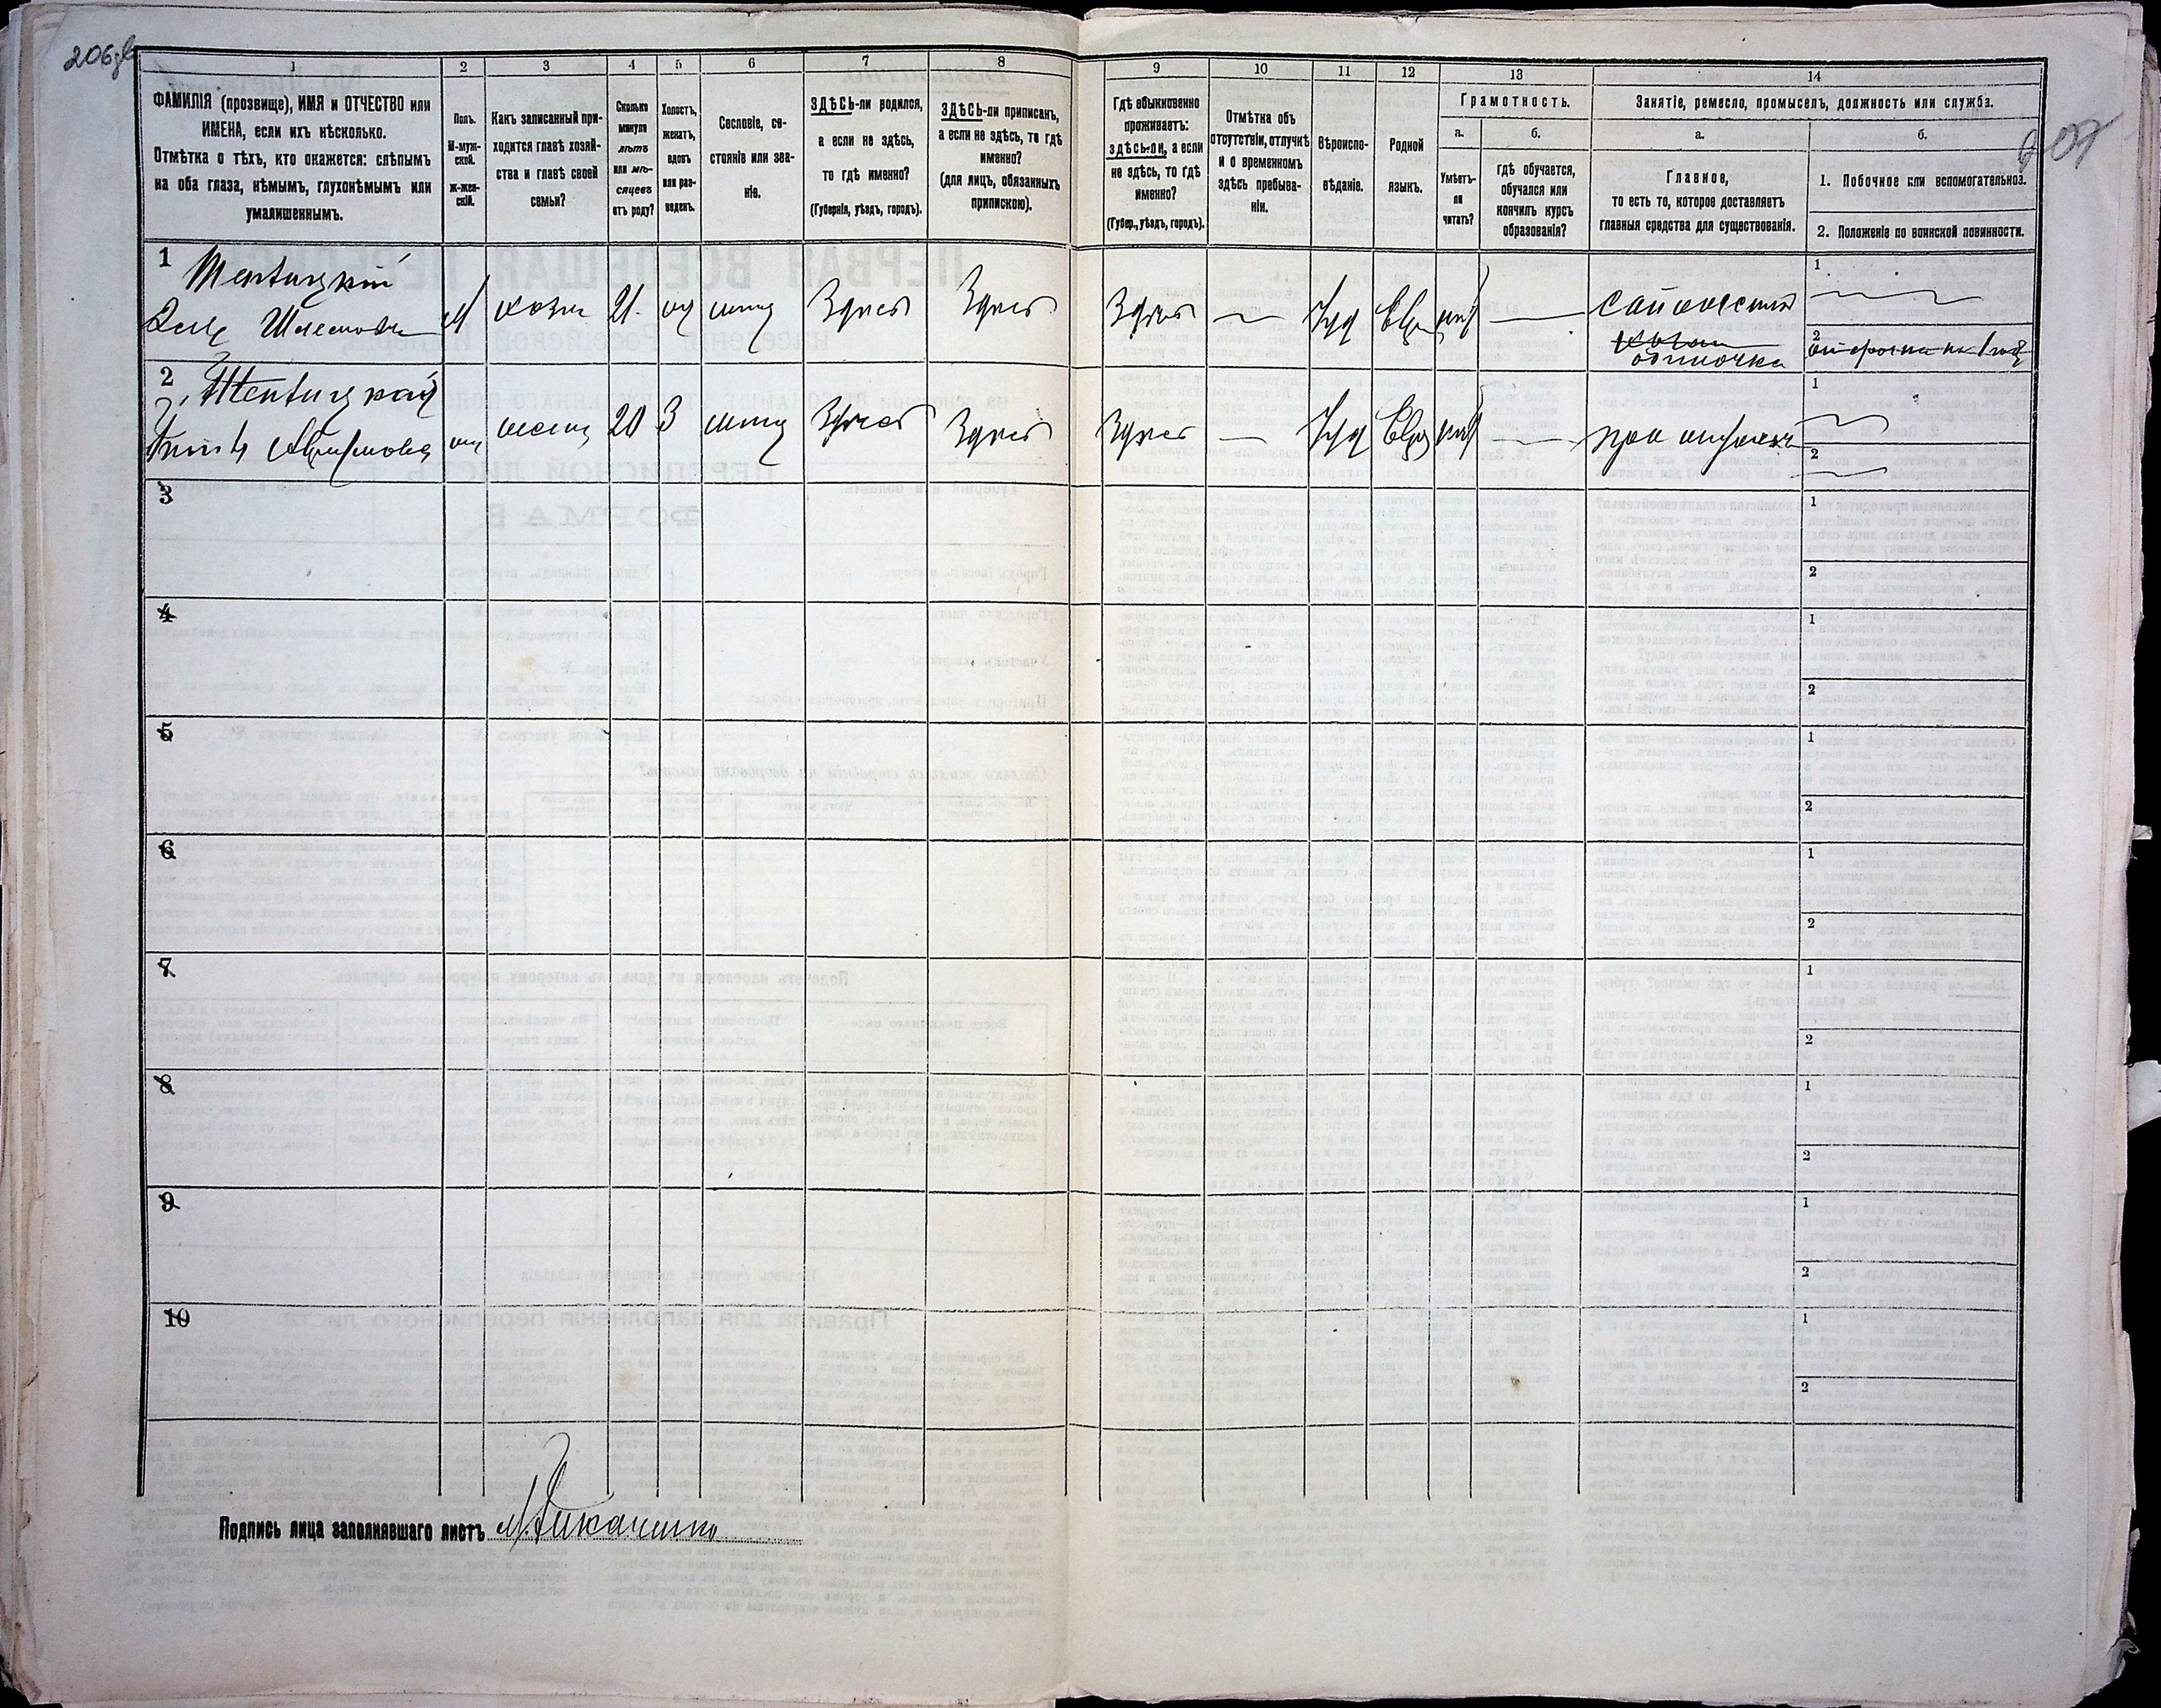 206об
207
1
2
3
4
5
6
7
8
9
10
11
12
13
14
ФАМИЛІЯ (прозвище), ИМЯ и ОТЧЕСТВО или
ИМЕНА, если ихъ нѣсколько.
Отмѣтка о тѣхъ, кто окажется: слѣпымъ
на оба глаза, нѣмымъ, глухонѣмымъ или
умалишеннымъ.
Полъ.
М-муж-
ской.
ж-жен-
скій.
Какъ записанный при-
ходится главѣ хозяй-
ства и главѣ своей
семьи?
Сколько
минуло
лѣтъ
или мѣ-
сяцевъ
отъ роду?
Холостъ,
женатъ,
вдовъ
или раз-
веденъ.
Сословіе, со-
стояніе или зва-
ніе.
ЗДѢСЬ-ли родился,
а если не здѣсь,
то гдѣ именно?
(Губернія, уѣздъ, городъ).
ЗДѢСЬ-ли приписанъ,
а если не здѣсь, то гдѣ
именно?
(для лицъ, обязанныхъ
припискою).
Гдѣ обыкновенно
проживаетъ:
здѣсь-ли, а если
не здѣсь, то гдѣ
именно?
(Губер., уѣздъ, городъ).
Отмѣтка объ
отсутствіи, отлучкѣ
и о временномъ
здѣсь пребыва-
ніи.
Вѣроиспо-
вѣданіе.
Родной
языкъ.
Грамотность.
а.
б.
Умѣетъ-
ли
читать?
гдѣ обучается,
обучался или
кончилъ курсъ
образованія?
Занятіе, ремесло, промыселъ, должность или служба.
а.
б.
Главное,
то есть то, которое доставляетъ
главныя средства для существованія.
1. Побочное или вспомогательное.
2. Положеніе по воинской повинности.
1
М
хозя
21
Здѣсь
Здѣсь
Здѣсь
Іуд
Евр
одиночка
1
2
2
20
З
Здѣсь
Здѣсь
Здѣсь
Іуд
Евр
при
1
2
3
1
2
4
1
2
5
1
2
6
1
2
7
1
2
8
1
2
9
1
2
10
1
2
Подпись лица заполнявшаго листъ